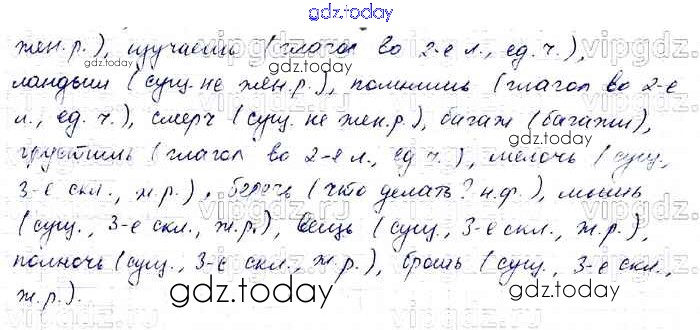 gdz.today
жен.р.), изучаешь (глагол во 2-е л., ед.ч.),
gdz.today
ландыш (сущ. не жен.р.), помнишь (глагол во 2-е
л., ед.ч.), смерч (сущ. не жен.р.), багаж (багажи),
грустишь (глагол во 2-е л., ед.ч.), мелочь (сущ.,
gdz.today
3-е скл., ж.р.), беречь (что делать? н.ф.), мышь
(сущ., 3-е скл., ж.р.), вещь (сущ., 3-е скл., ж.р.),
полночь (сущ., 3-е скл., ж.р.), брошь (сущ., 3-е скл.,
ж.р.).
gdz.today
gdz.today